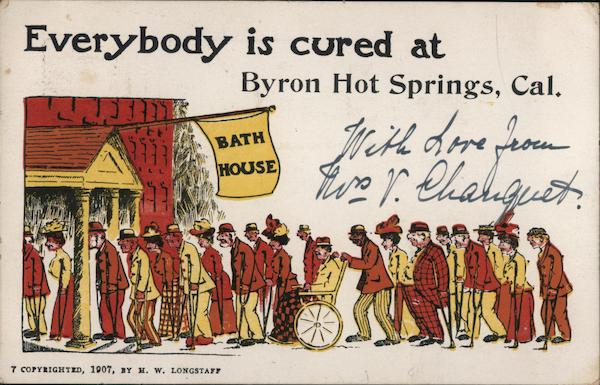 Everybody is cured at
Byron Hot Springs, Cal.
BATH
HOUSE
With Love from
Mrs V. Changuet.
7 COPYRIGHTED, 1907, BY H. W. LONGSTAFF